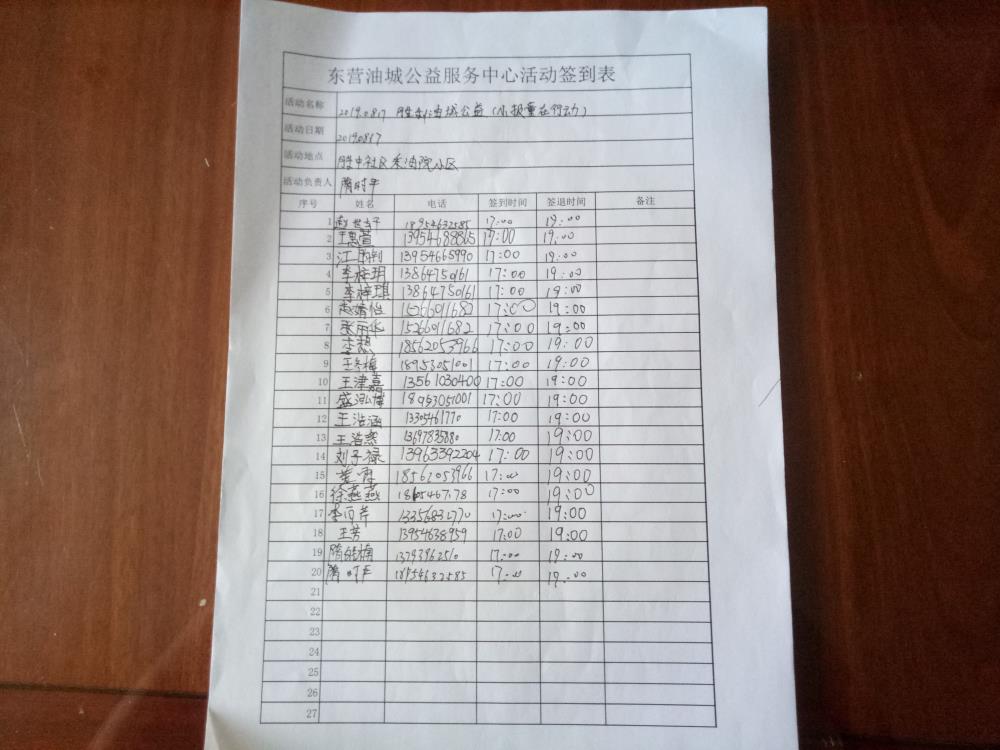 东营油城公益服务中心活动签到表
活动名称 2019.0817 胜利油城公益(小报童在行动)
活动日期 2019.0817
活动地点 胜中社区采油院小区
活动负责人 隋时平
序号 姓名 电话 签到时间 签退时间 备注
1 18954632585 17:00 19:00
2 王惠萱 13954688865 17:00 19:00
3 13954665990 17:00 19:00
4 李梓玥 13864750161 17:00 19:00
5 李梓琪 13864750161 17:00 19:00
6 赵婧怡 15266011682 17:00 19:00
7 张丽华 15266911682 17:00 19:00
8 李想 18562053966 17:00 19:00
9 王冬梅 18953051001 17:00 19:00
10 王津嘉 13561030400 17:00 19:00
11 盛泓博 18953051001 17:00 19:00
12 王浩涵 13305461770 17:00 19:00
13 王浩 17:00 19:00
14 刘子禄 13963392204 17:00 19:00
15 18562053966 17:00 19:00
16 徐燕燕 17:00 19:00
17 17:00 19:00
18 王芳 13954638959 17:00 19:00
19 17:00 19:00
20 隋时平 18954632585 17:00 19:00
21
22
23
24
25
26
27